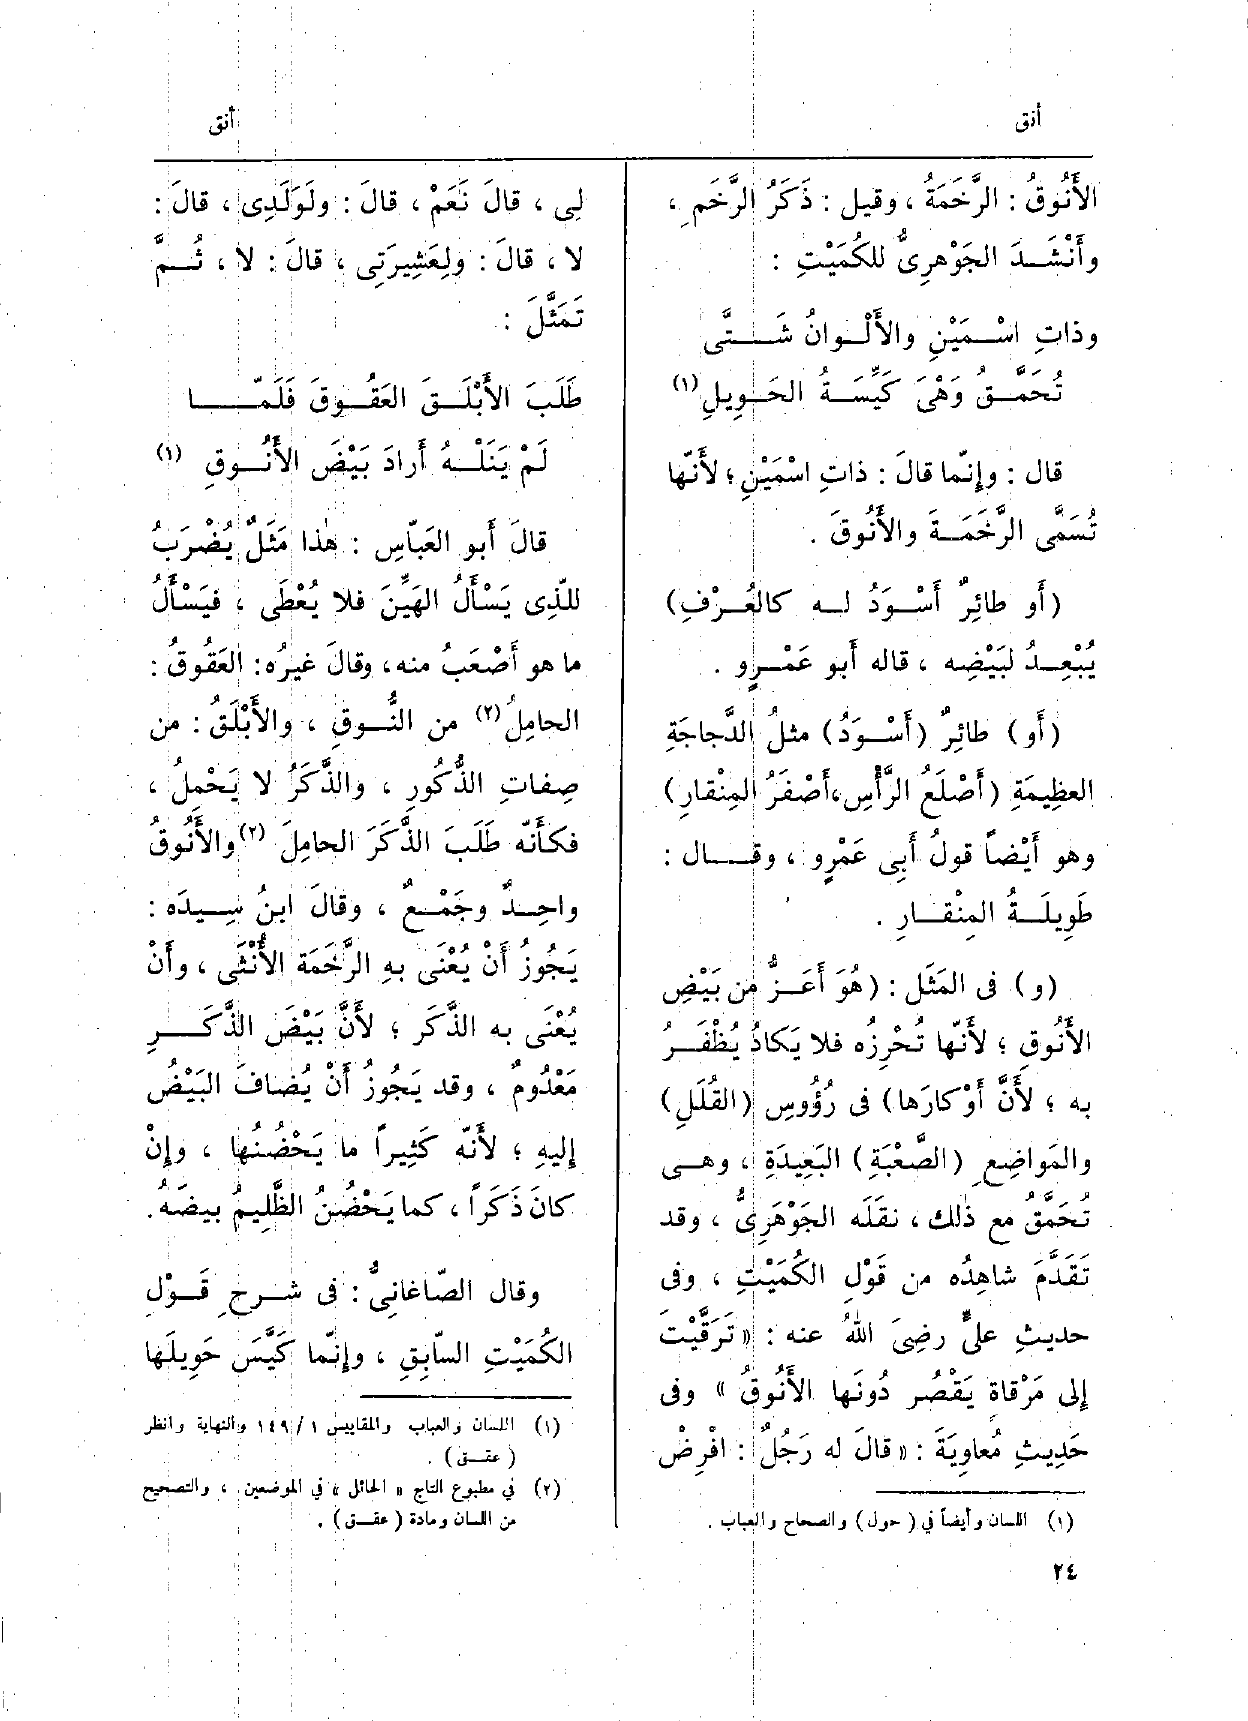 أنق
أنق
الأَنُوقُ : الرَّخَمَةُ ، وقيل : ذَكَرُ الرَّخَمِ ،
وأَنْشَدَ الجَوْهَرِىُّ للكُمَيْتِ :
وذاتِ اسْمَيْنِ والأَلْوانُ شَتَّى
تُحَمَّقُ وَهْىَ كَيِّسَةُ الحَوِيلِ (١)
قال : وإِنّما قالَ : ذاتِ اسْمَيْنِ ؛ لأَنَّها
تُسَمَّى الرَّخَمَةَ والأَنُوقَ .
(أَو طائِرٌ أَسْوَدُ له كالعُرْفِ)
يُبْعِدُ لبَيْضِه ، قاله أَبو عَمْرٍو .
(أَو) طائِرٌ (أَسْوَدُ) مثلُ الدَّجاجَةِ
العظِيمَةِ (أَصْلَعُ الرَّأْسِ، أَصْفَرُ المِنْقارِ)
وهو أَيْضاً قولُ أَبِى عَمْرٍو ، وقال :
طَوِيلَةُ المِنْقارِ .
(و) فى المَثَل : (هُوَ أَعَزُّ من بَيْضِ
الأَنُوقِ ؛ لأَنّها تُحْرِزُه فلا يَكادُ يُظْفَرُ
به ؛ لأَنَّ أَوْكارَها) فى رُؤُوسِ (القُلَلِ)
والمَواضِعِ (الصَّعْبَةِ) البَعِيدَةِ ، وهى
تُحَمَّقُ مع ذٰلك ، نقَلَه الجَوْهَرِىُّ ، وقد
تَقَدَّمَ شاهِدُه من قَوْلِ الكُمَيْتِ ، وفى
حديثِ علىٍّ رضِىَ اللهُ عنه : « تَرَقَّيْتَ
إِلى مَرْقاةٍ يَقْصُر دُونَها الأَنُوقُ » وفى
حَدِيثِ مُعاوِيَةَ : « قالَ له رَجُلٌ : افْرِضْ
(١) اللسان وأيضاً في (حول) والصحاح والعباب .
٢٤
لِى ، قالَ نَعَمْ ، قالَ : ولِوَلَدِى ، قالَ :
لا ، قالَ : ولِعَشِيرَتِى ، قالَ : لا ، ثُمَّ
تَمَثَّلَ :
طَلَبَ الأَبْلَقَ العَقُوقَ فَلَمّا
لَمْ يَنَلْهُ أَرادَ بَيْضَ الأَنُوقِ (١)
قالَ أَبو العَبّاسِ : هٰذا مَثَلٌ يُضْرَبُ
للّذِى يَسْأَلُ الهَيِّنَ فلا يُعْطَى ، فيَسْأَلُ
ما هو أَصْعَبُ منه، وقالَ غيرُه: العَقُوقُ :
الحامِلُ (٢) من النُّوقِ ، والأَبْلَقُ : من
صِفاتِ الذُّكُورِ ، والذَّكَرُ لا يَحْمِلُ ،
فكأَنّه طَلَبَ الذَّكَرَ الحامِلَ (٢) والأَنُوقُ
واحِدٌ وجَمْعٌ ، وقالَ ابنُ سِيدَه :
يَجُوزُ أَنْ يُعْنَى بهِ الرَّخَمَة الأُنْثَى ، وأَنْ
يُعْنَى به الذَّكَر ؛ لأَنَّ بَيْضَ الذَّكَرِ
مَعْدُومٌ ، وقد يَجُوزُ أَنْ يُضافَ البَيْضُ
إِليهِ ؛ لأَنَّه كَثِيراً ما يَحْضُنُها ، وإِنْ
كانَ ذَكَراً ، كما يَحْضُنُ الظَّلِيمُ بيضَهُ.
وقال الصّاغانِىُّ : فى شرحِ قَوْلِ
الكُمَيْتِ السّابِقِ ، وإِنّما كَيَّسَ حَوِيلَها
(١) اللسان والعباب والمقاييس ١ /١٤٩ والنهاية وانظر
(عقق) .
(٢) في مطبوع التاج « الحائل » في الموضعين ، والتصحيح
من اللسان ومادة (عقق) .